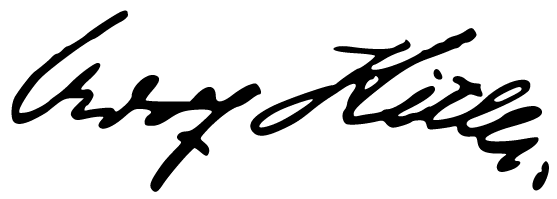 Adolf Hitler